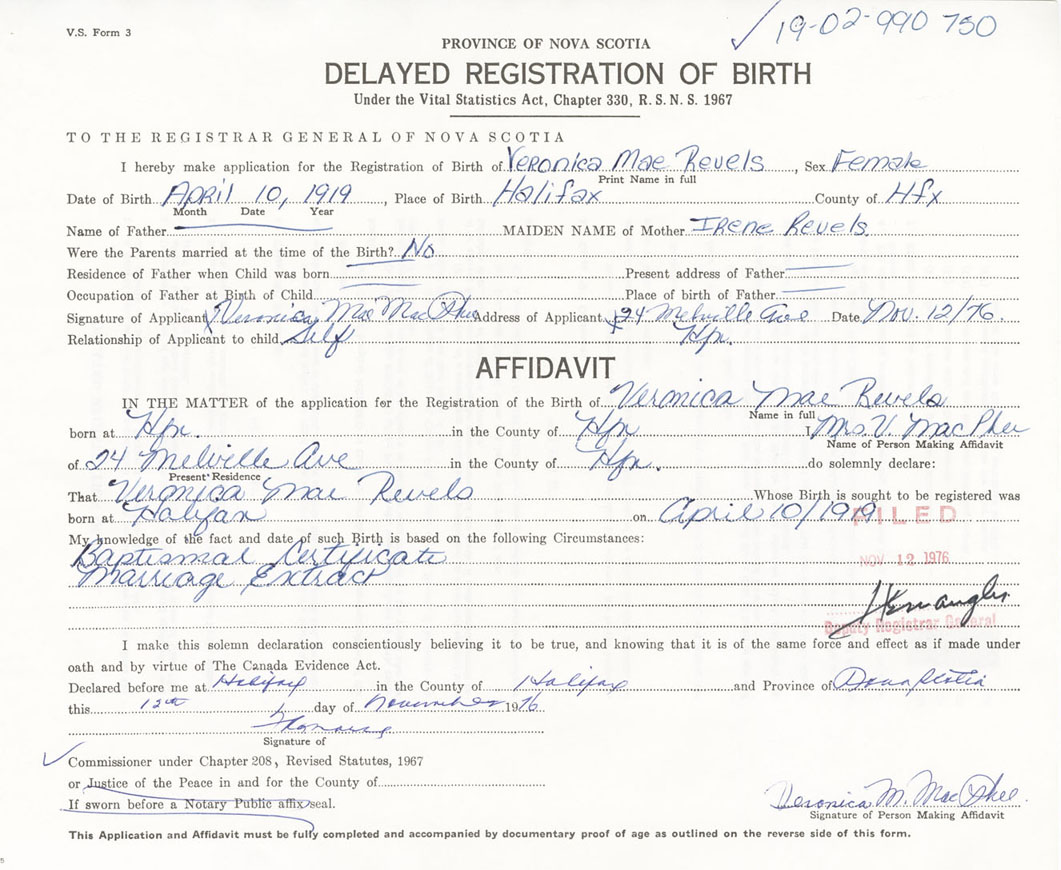 V.S. Form 3
19-02-990 750
PROVINCE OF NOVA SCOTIA
DELAYED REGISTRATION OF BIRTH
Under the Vital Statistics Act, Chapter 330, R.S.N.S. 1967
TO THE REGISTRAR GENERAL OF NOVA SCOTIA
I hereby make application for the Registration of Birth of Veronica Mae Revels, Sex Female
Print Name in full
Date of Birth April 10, 1919, Place of Birth Halifax County of Hfx
Month Date Year
Name of Father MAIDEN NAME of Mother Irene Revels
Were the Parents married at the time of the Birth? No
Residence of Father when Child was born Present address of Father
Occupation of Father at Birth of Child Place of birth of Father
Signature of Applicant Veronica Mae MacPhee Address of Applicant 24 Melville Ave Date Nov. 12/76
Relationship of Applicant to child Self Hfx.
AFFIDAVIT
IN THE MATTER of the application for the Registration of the Birth of Veronica Mae Revels
Name in full
born at Hfx. in the County of Hfx I, Mrs. V. MacPhee
Name of Person Making Affidavit
of 24 Melville Ave in the County of Hfx. do solemnly declare:
Present Residence
That Veronica Mae Revels Whose Birth is sought to be registered was
born at Halifax on April 10/1919
FILED
My knowledge of the fact and date of such Birth is based on the following Circumstances:
Baptismal Certificate
NOV 12 1976
Marriage Extract
Deputy Registrar General
I make this solemn declaration conscientiously believing it to be true, and knowing that it is of the same force and effect as if made under
oath and by virtue of The Canada Evidence Act.
Declared before me at Halifax in the County of Halifax and Province of Nova Scotia
this 12th day of November 1976
Signature of
Commissioner under Chapter 208, Revised Statutes, 1967
or Justice of the Peace in and for the County of
If sworn before a Notary Public affix seal.
Veronica M. MacPhee
Signature of Person Making Affidavit
This Application and Affidavit must be fully completed and accompanied by documentary proof of age as outlined on the reverse side of this form.